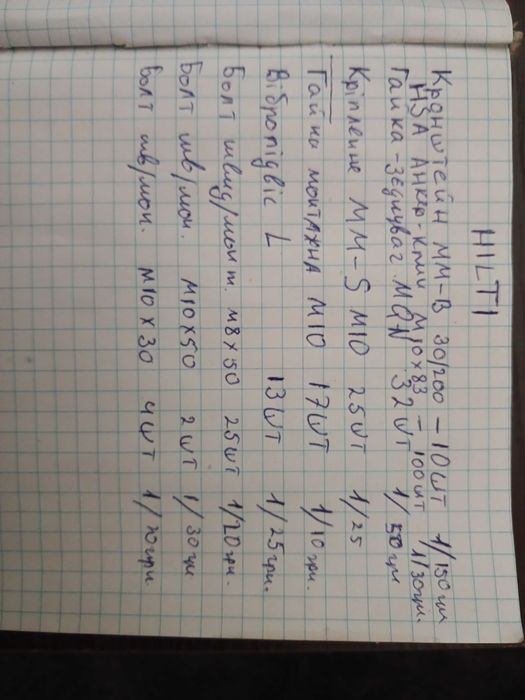 HILTI
Кронштейн MM-B 30/200 - 10шт 1/150грн
HSA Анкер-клин M10x83 - 100шт 1/30грн.
Гайка-зєднуваг. MQN 32шт 1/50грн
Кріплення MM-S M10 25шт 1/25
Гайка монтажна M10 17шт 1/10грн.
Вібропідвіс L 13шт 1/25грн.
Болт швид/монт. м8x50 25шт 1/20грн.
Болт шв/мон. M10x50 2шт 1/30грн
Болт шв/мон. M10x30 4шт 1/20грн.